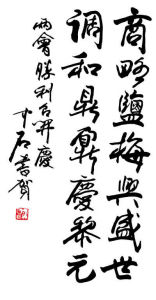 商略鹽梅興盛世
調和鼎鼐慶黎元
兩會勝利召開慶
中石書賀